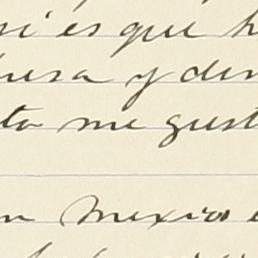 si es que h
y din
to me gust
n Mexico